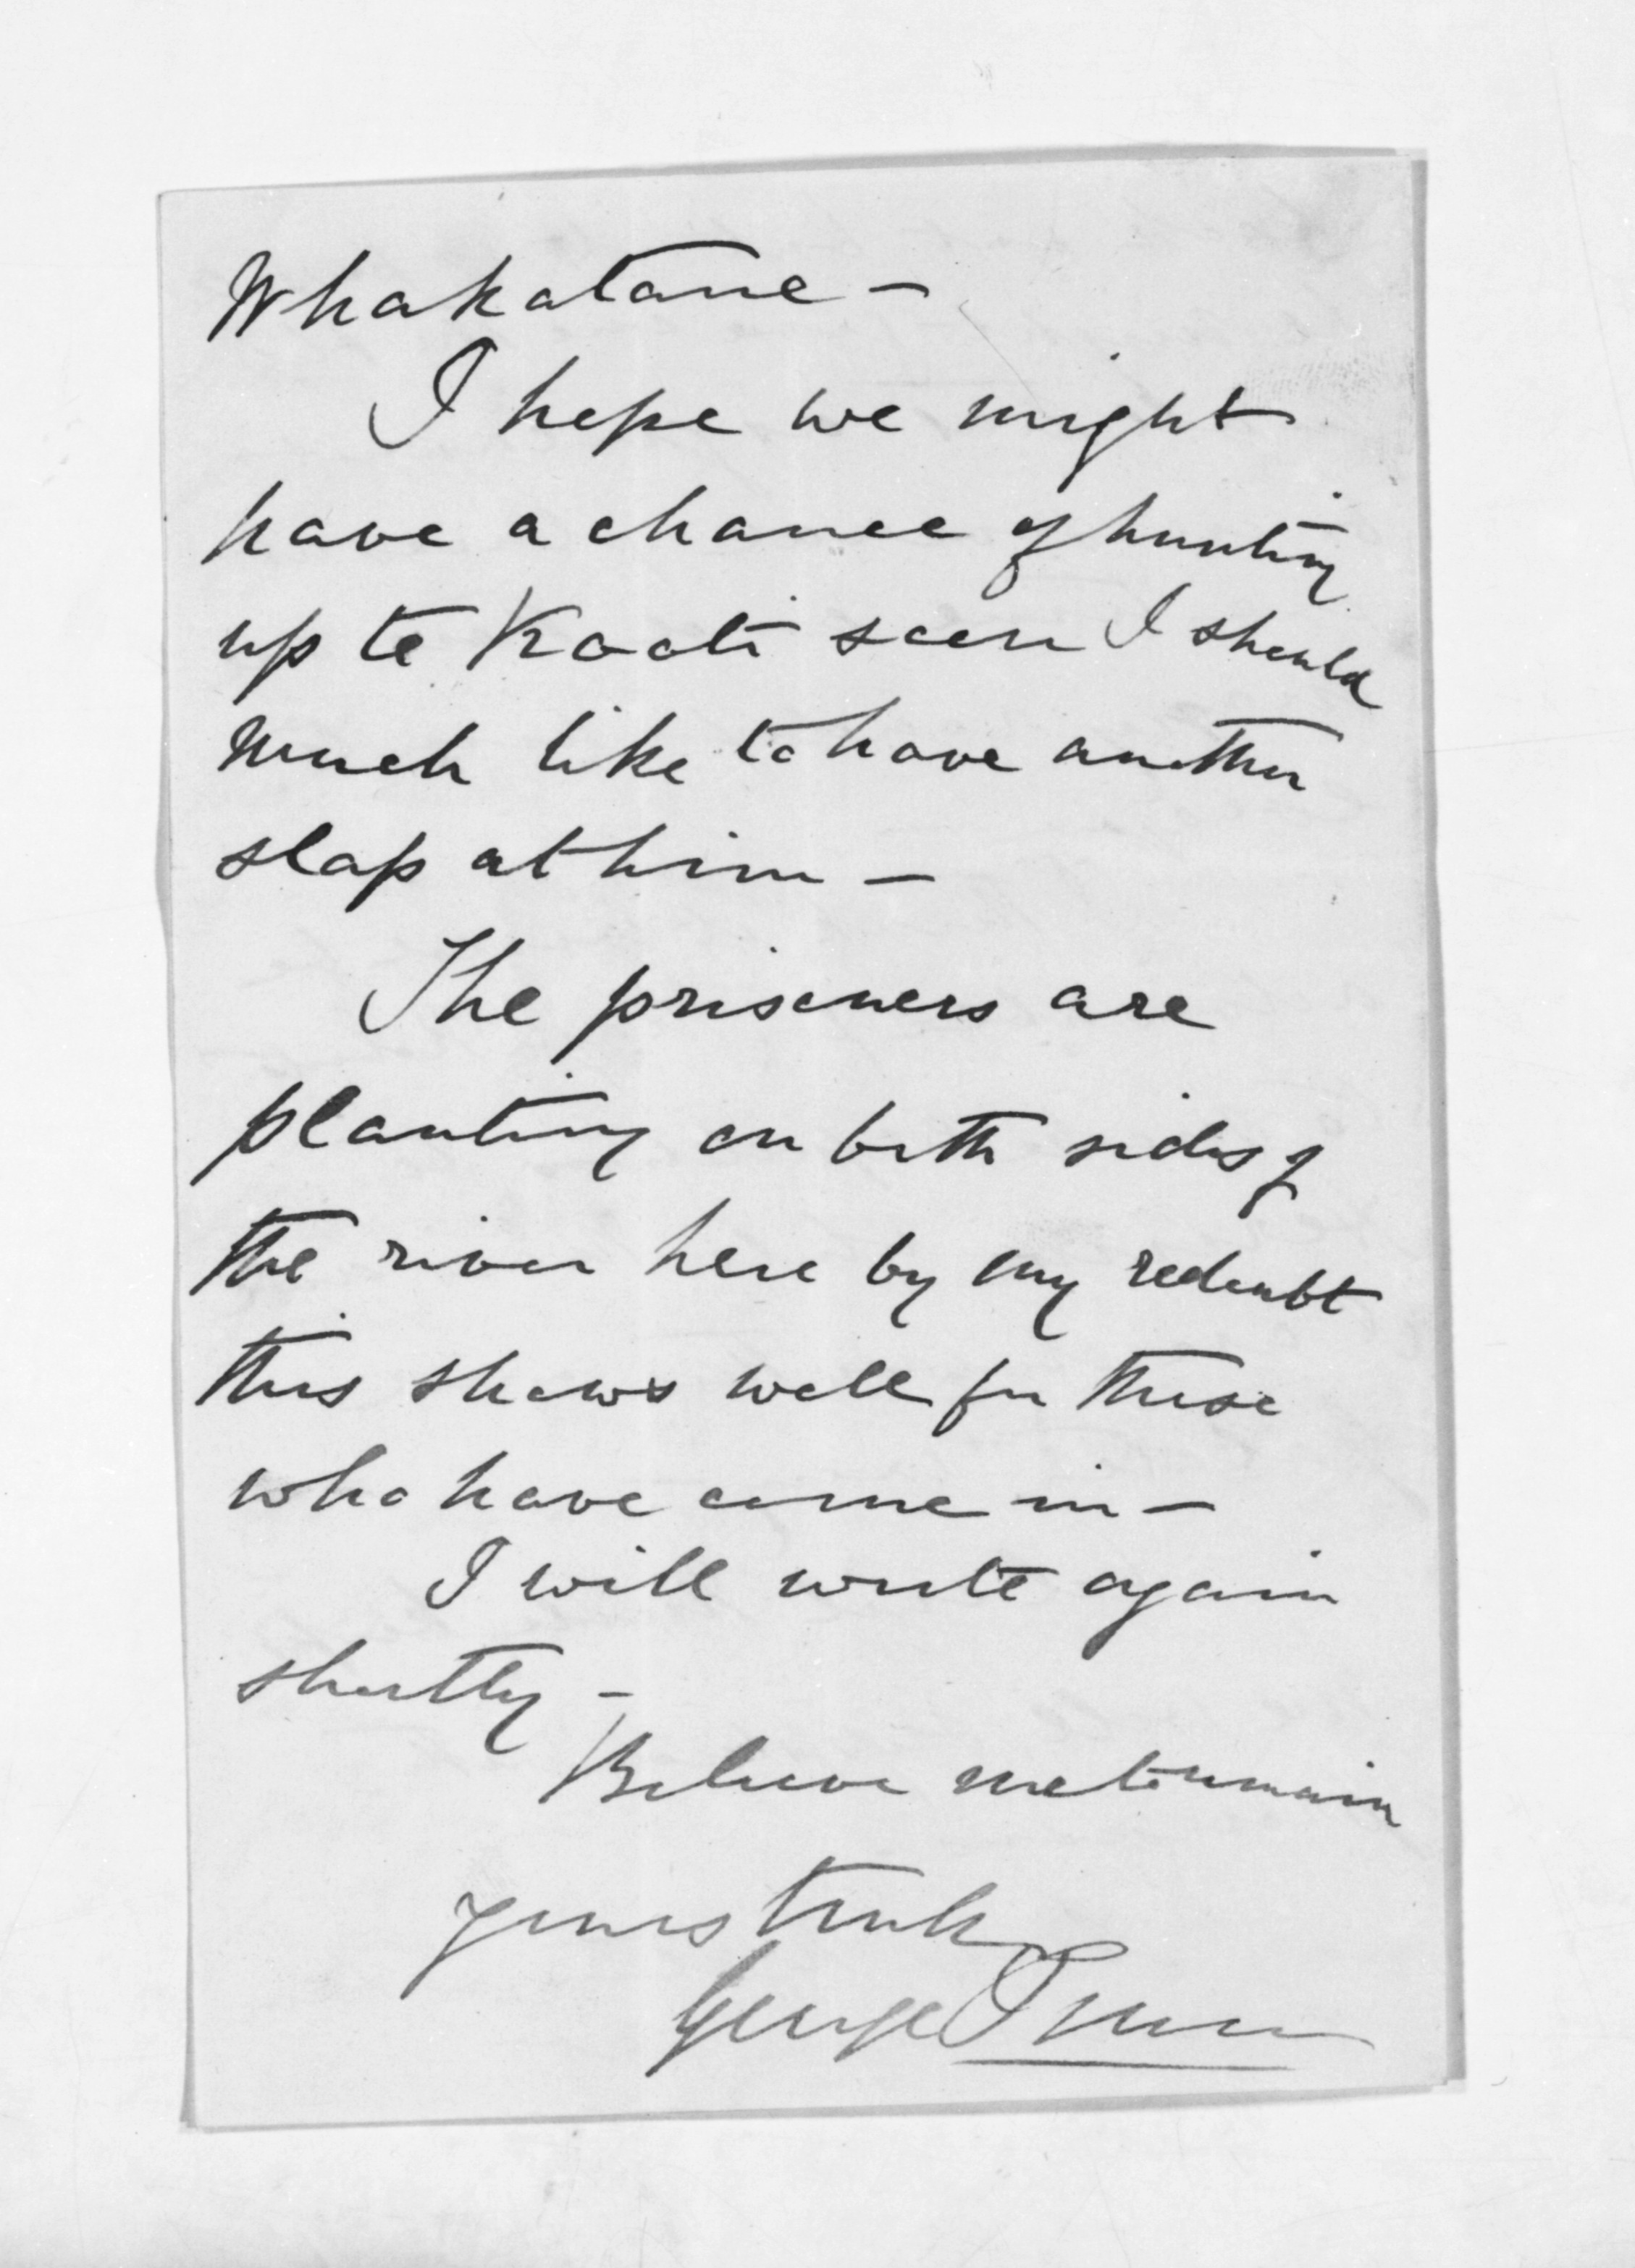 Whakatane –
I hope we might
have a chance of hunting
up te Kooti soon I should
much like to have another
slap at him –
The prisoners are
planting on both sides of
the river here by my redoubt
this shows well for those
who have come in –
I will write again
shortly –
Believe me to remain
yours truly
George Preece